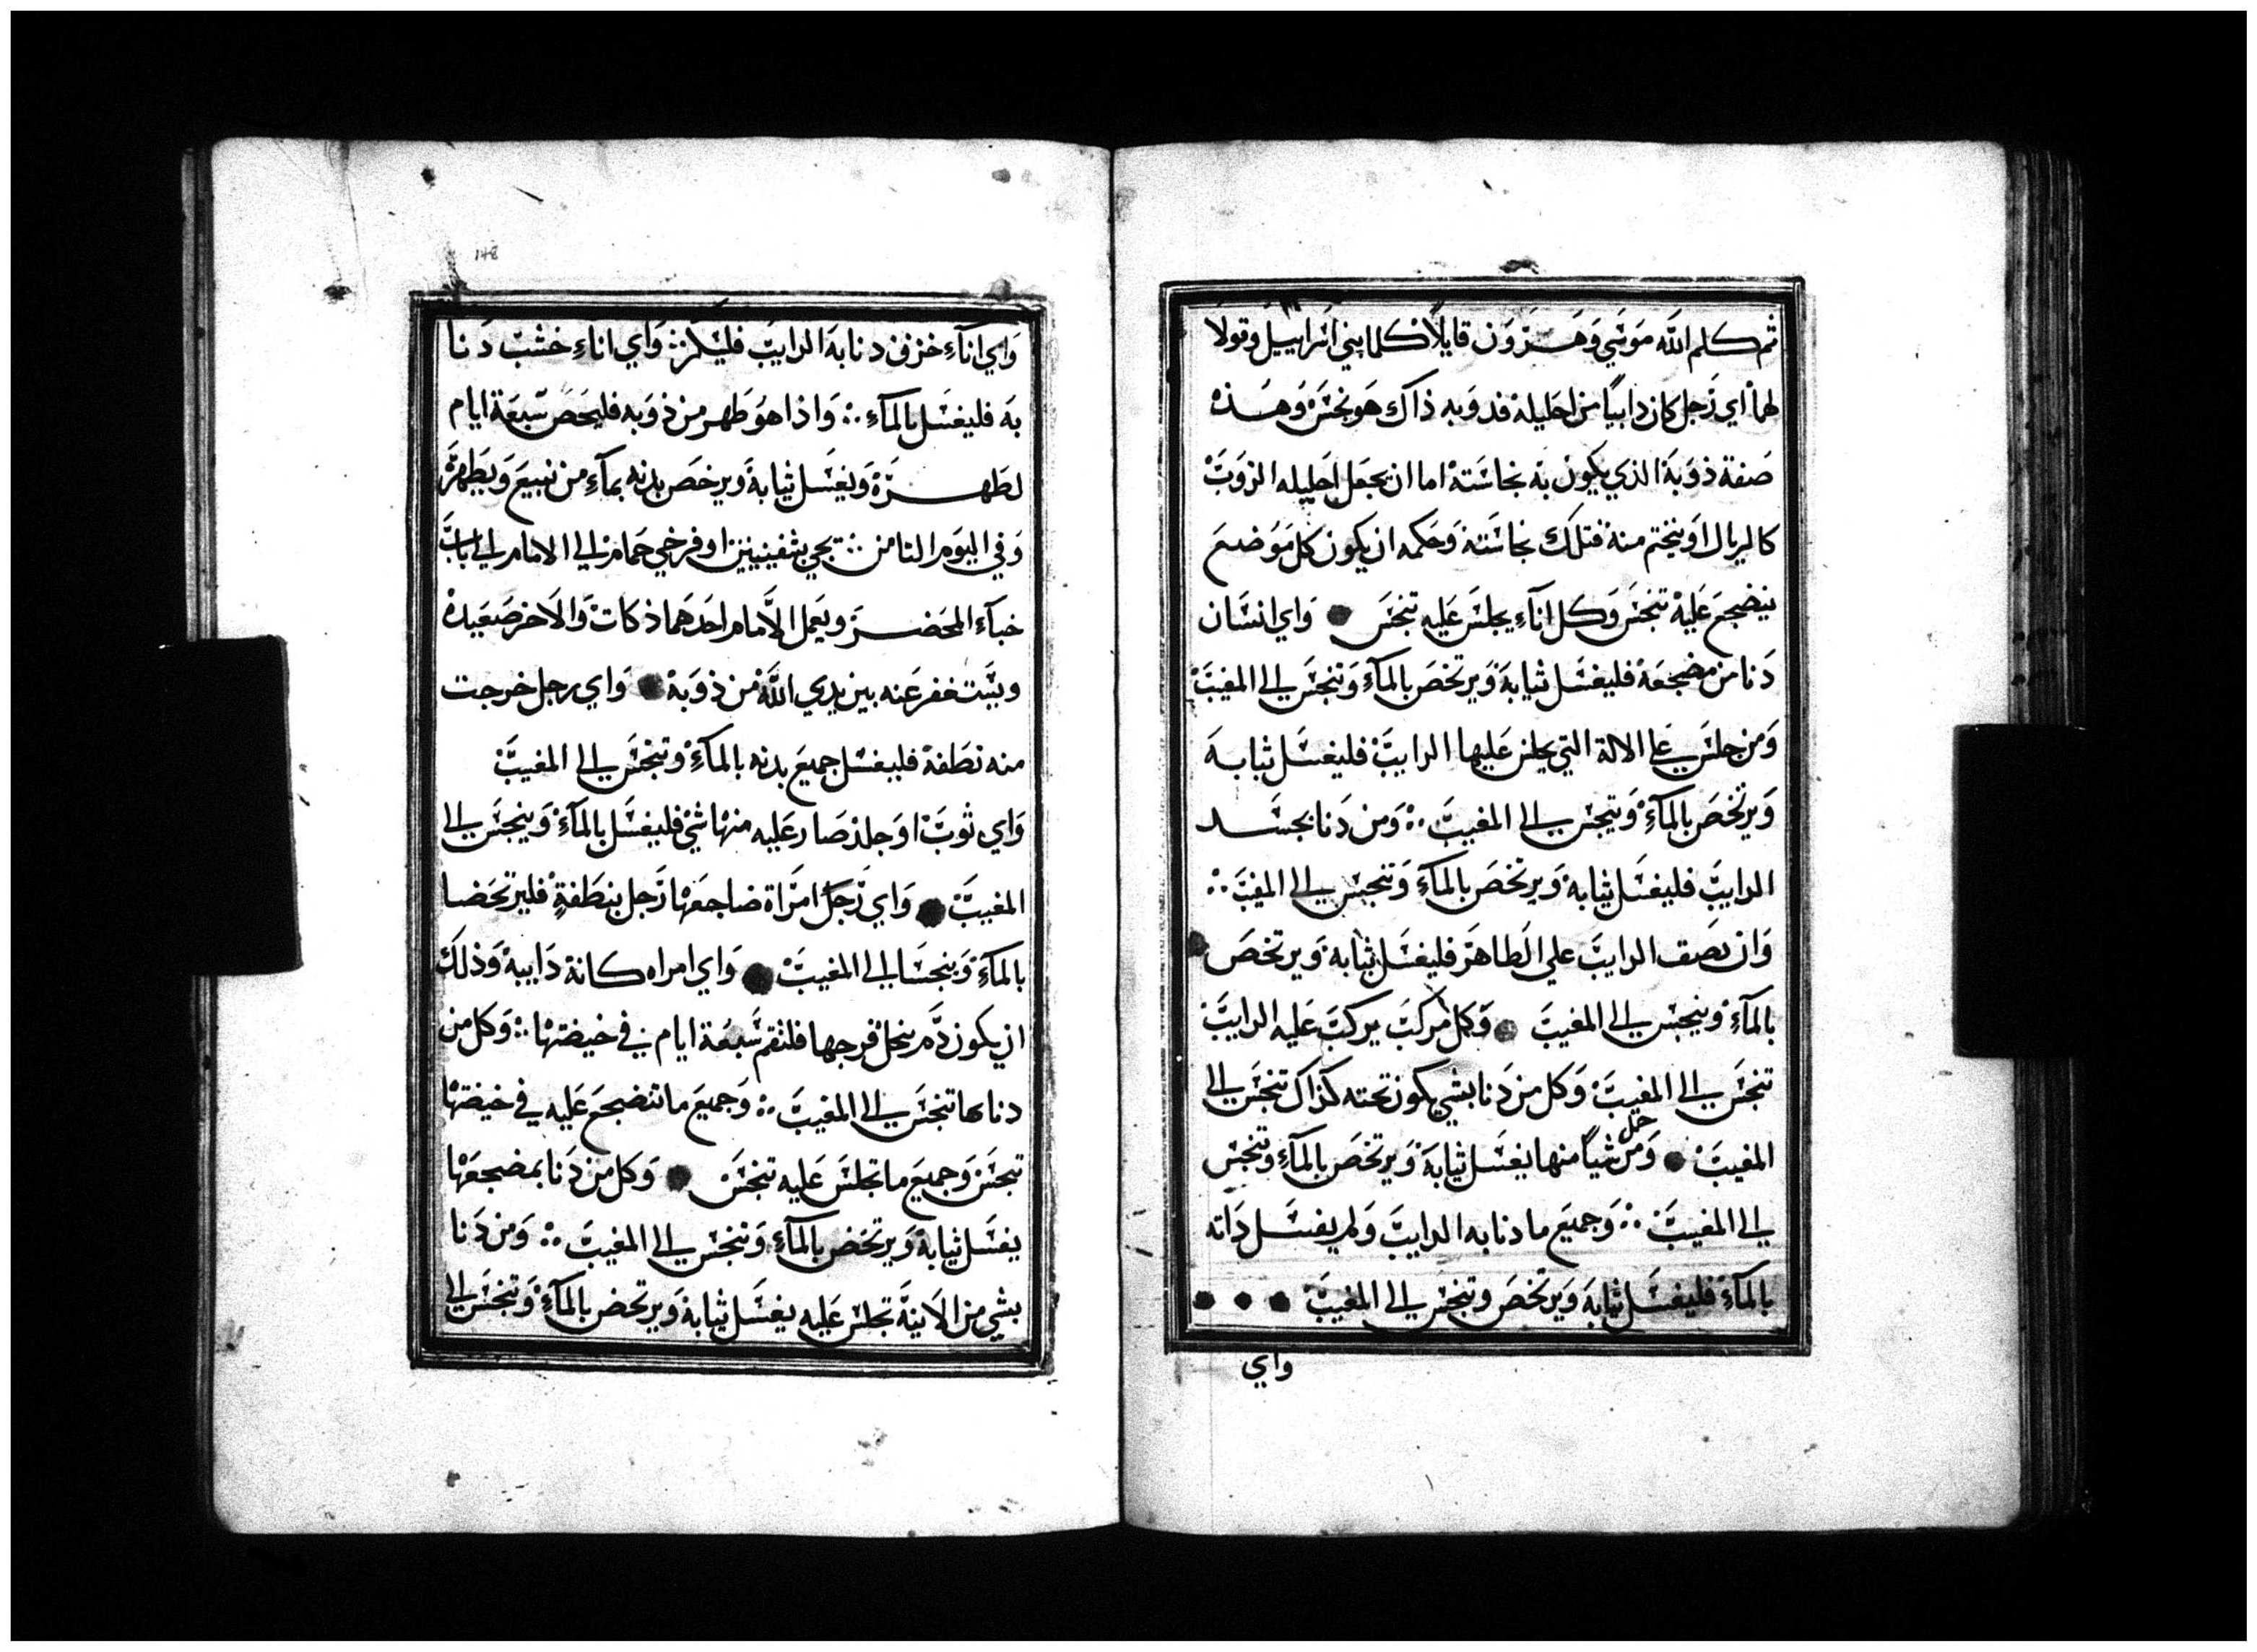 ثم كلم الله موسي وهرون قايلا كلما بني اسراييل وقولا
لهما اي رجل كان دابيا من احليله فدوبه ذاك هو نجس وهذه
صفة ذوبة الذي يكون به نجاسته اما ان يجعل احليله الزوب
كالريال او ينختم منه فتلك نجاسته وحكمه ان يكون كل موضع
ينضجع عليه تنجس وكل انآء يجلس عليه تنجس واي انسان
دنا من مضجعه فليغسل ثيابه ويرتخص بالمآء وتنجس الي المغيب
ومن جلس علي الالة التي يجلس عليها الدايب فليغسل ثيابه
ويرتخص بالمآء ويتنجس الي المغيب ومن دنا بجسد
الدايب فليغسل ثيابه ويرتخص بالمآء وتنجس الي المغيب
وان بصق الدايب علي الطاهر فليغسل ثيابه ويرتخص
بالمآء وينجس الي المغيب وكل مركب يركب عليه الدايب
تنجس الي المغيب وكل من دنا بشي يكون تحته كذاك تنجس الي
المغيب ومن حمل شيا منها يغسل ثيابه ويرتخص بالمآء وتنجس
الي المغيب وجميع ما دنا به الدايب ولم يغسل داته
بالمآء فليغسل ثيابه ويرتخص وتنجس الي المغيب
واي
148
واي انآء خزف دنا به الدايب فليكسر واي اناء خشب دنا
به فليغسل بالمآء واذا هو طهر من ذوبه فليحص سبعة ايام
لطهرة ويغسل ثيابه ويرخص بدنه بمآء من نبيع ويطهر
وفي اليوم الثامن تجي بشفنينين او فرخي حمام الي الامام الي باب
خبآء المحضر ويعمل الامام احدهما ذكات والاخر صعيده
ويستغفر عنه بين يدي الله من ذوبه واي رجل خرجت
منه نطفة فليغسل جميع بدنه بالمآء وتنجس الي المغيب
واي ثوب او جلد صار عليه منها شي فليغسل بالمآء وينجس الي
المغيب واي رجل امراة ضاجعها رجل بنطفة فليرتحضا
بالمآء وينجسا الي المغيب واي امراه كانة دايبة وذلك
ان يكون دم ينحل فرجها فلتقم سبعة ايام في خيضتها وكل من
دنا بها تنجس الي المغيب وجميع ما تنضجع عليه في خيضتها
تنجس وجميع ما تجلس عليه تنجس وكل من دنا بمضجعها
يغسل ثيابه ويرتحض بالمآء وتنجس الي المغيب ومن دنا
بشي من الانية تجلس عليه يغسل ثيابه ويرتحض بالمآء وتنجس الي